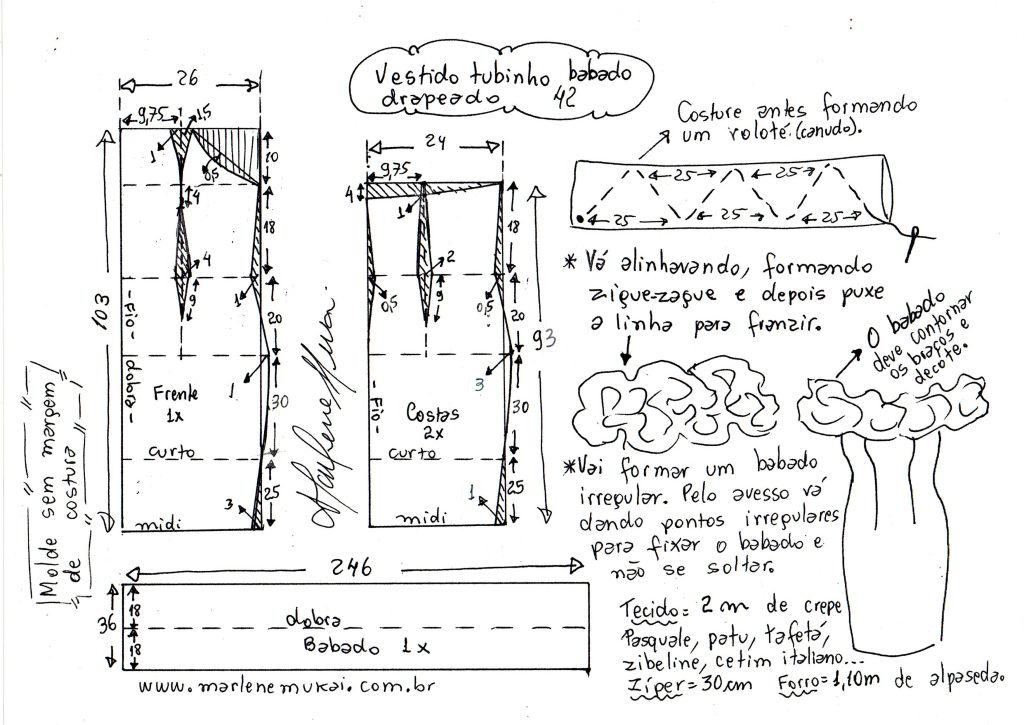 Vestido tubinho babado
drapeado 42
26
9,75
1,5
1
0,5
10
4
18
4
9
1
20
103
-Fio-dobra-
Frente
1x
1
30
curto
25
3
midi
Molde sem margem
de costura
Marlene Mukai
24
9,75
4
1
18
2
9
0,5
0,5
20
93
-Fio-
3
Costas
2x
30
curto
1
25
midi
Costure antes formando
um roloté.(canudo).
25
25
25
25
25
* Vá alinhavando, formando
zigue-zague e depois puxe
a linha para franzir.
O babado
deve contornar
os braços e
decote.
*Vai formar um babado
irregular. Pelo avesso vá
dando pontos irregulares
para fixar o babado e
não se soltar.
246
36
18
18
dobra
Babado 1x
www.marlenemukai.com.br
Tecido= 2m de crepe
Pasquale, patu, tafetá,
zibeline, cetim italiano...
Zíper=30cm Forro=1,10m de alpaseda.